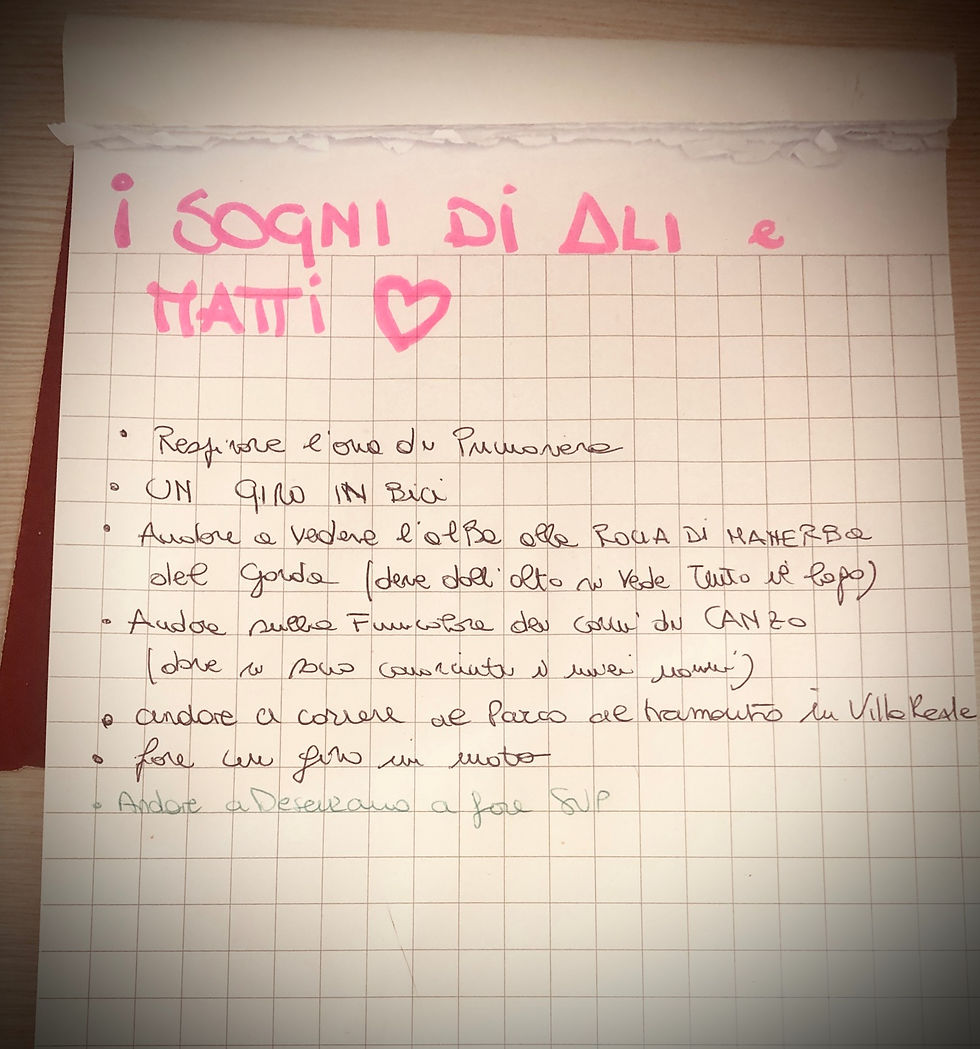 i SOGNI Di ALi e
MATTi
• Respirare l'aria di Primavera
• UN GIRO IN Bici
• Andare a vedere l'alba alla ROCCA Di MANERBa
del Garda (dove dall'alto si vede Tutto il lago)
• Andare sulla Funicolare dei corni di CANZO
(dove si sono conosciuti i miei nonni)
• andare a correre al Parco al tramonto in Villa Reale
• fare un giro in moto
• Andare a Desenzano a fare SUP